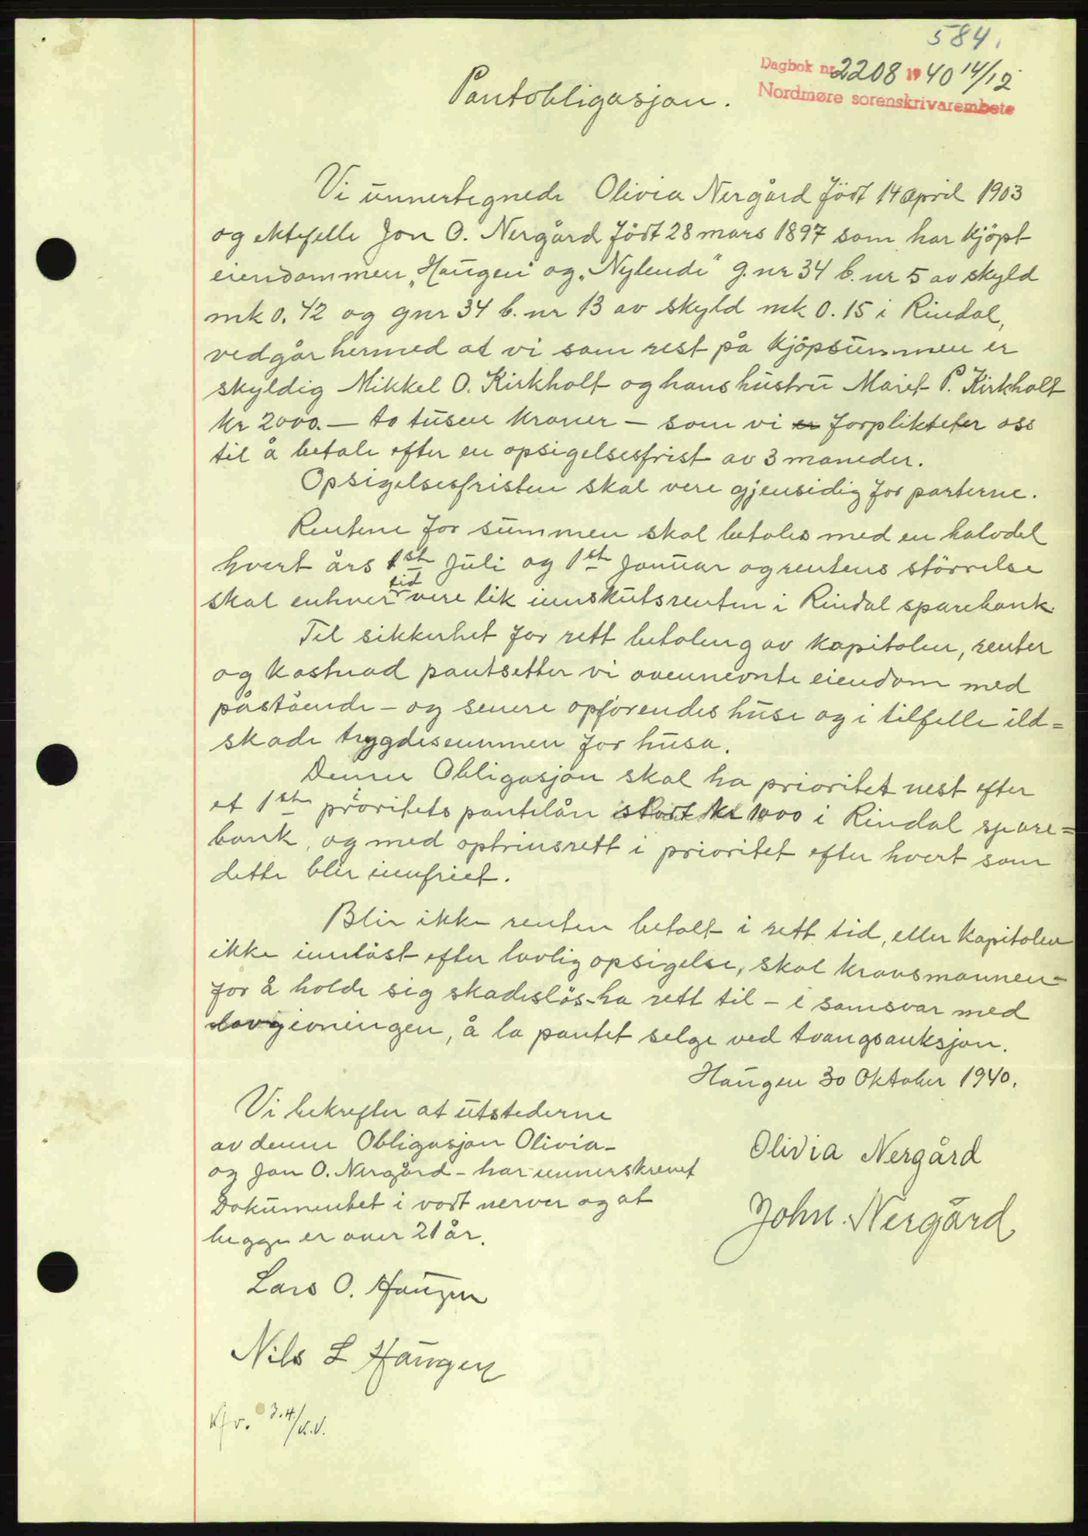 584.
Dagbok nr. 2208 1940 14/12
Nordmøre sorenskrivarembete
Pantobligasjon.
Vi unnertegnede Olivia Nergård född 14 april 1903
og ektefelle Jon O. Nergård född 28 mars 1897 som har kjöpt
eiendommen "Haugen" og "Nylende" g.nr 34 b.nr 5 av skyld
mk 0.42 og gnr 34 b.nr 13 av skyld mk 0.15 i Rindal,
vedgår hermed at vi som rest på kjöpsummen er
skyldig Mikkel O. Kirkholt og hans hustru Marit P. Kirkholt
kr 2000.— to tusen kroner — som vi er forplikteter oss
til å betale efter en opsigelsesfrist av 3 maneder.
Opsigelsesfristen skal vere gjensidig for parterne.
Rentene for summen skal betales med en halvdel
hvert års 1st Juli og 1st Januar og rentens störrelse
skal enhver tid vere lik innskutsrenten i Rindal sparebank.
Til sikkerhet for rett betaling av kapitalen, renter
og kostnad pantsetter vi ovennevnte eiendom med
påstående - og senere opförendes huse og i tilfelle ild=
skade trygdesummen for husa.
Denne Obligasjon skal ha prioritet nest efter
et 1st prioritets pantelån stort kr 1000 i Rindal spare=
bank, og med optrinsrett i prioritet efter hvert som
dette blir innfriet.
Blir ikke renten betalt i rett tid, eller kapitalen
ikke innlöst efter lovlig opsigelse, skal kravsmannen-
for å holde sig skadeslös-ha rett til - i samsvar med
lovgivningen, å la pantet selge ved tvangsauksjon.
Haugen 30 Oktober 1940.
Vi bekrefter at utstederne
av denne Obligasjon Olivia-
og Jon O. Nergård - har unnerskrevet
Dokumentet i vort nerver og at
begge er over 21 år.
Olivia Nergård
John Nergård
Lars O. Haugen
Nils L Haugen